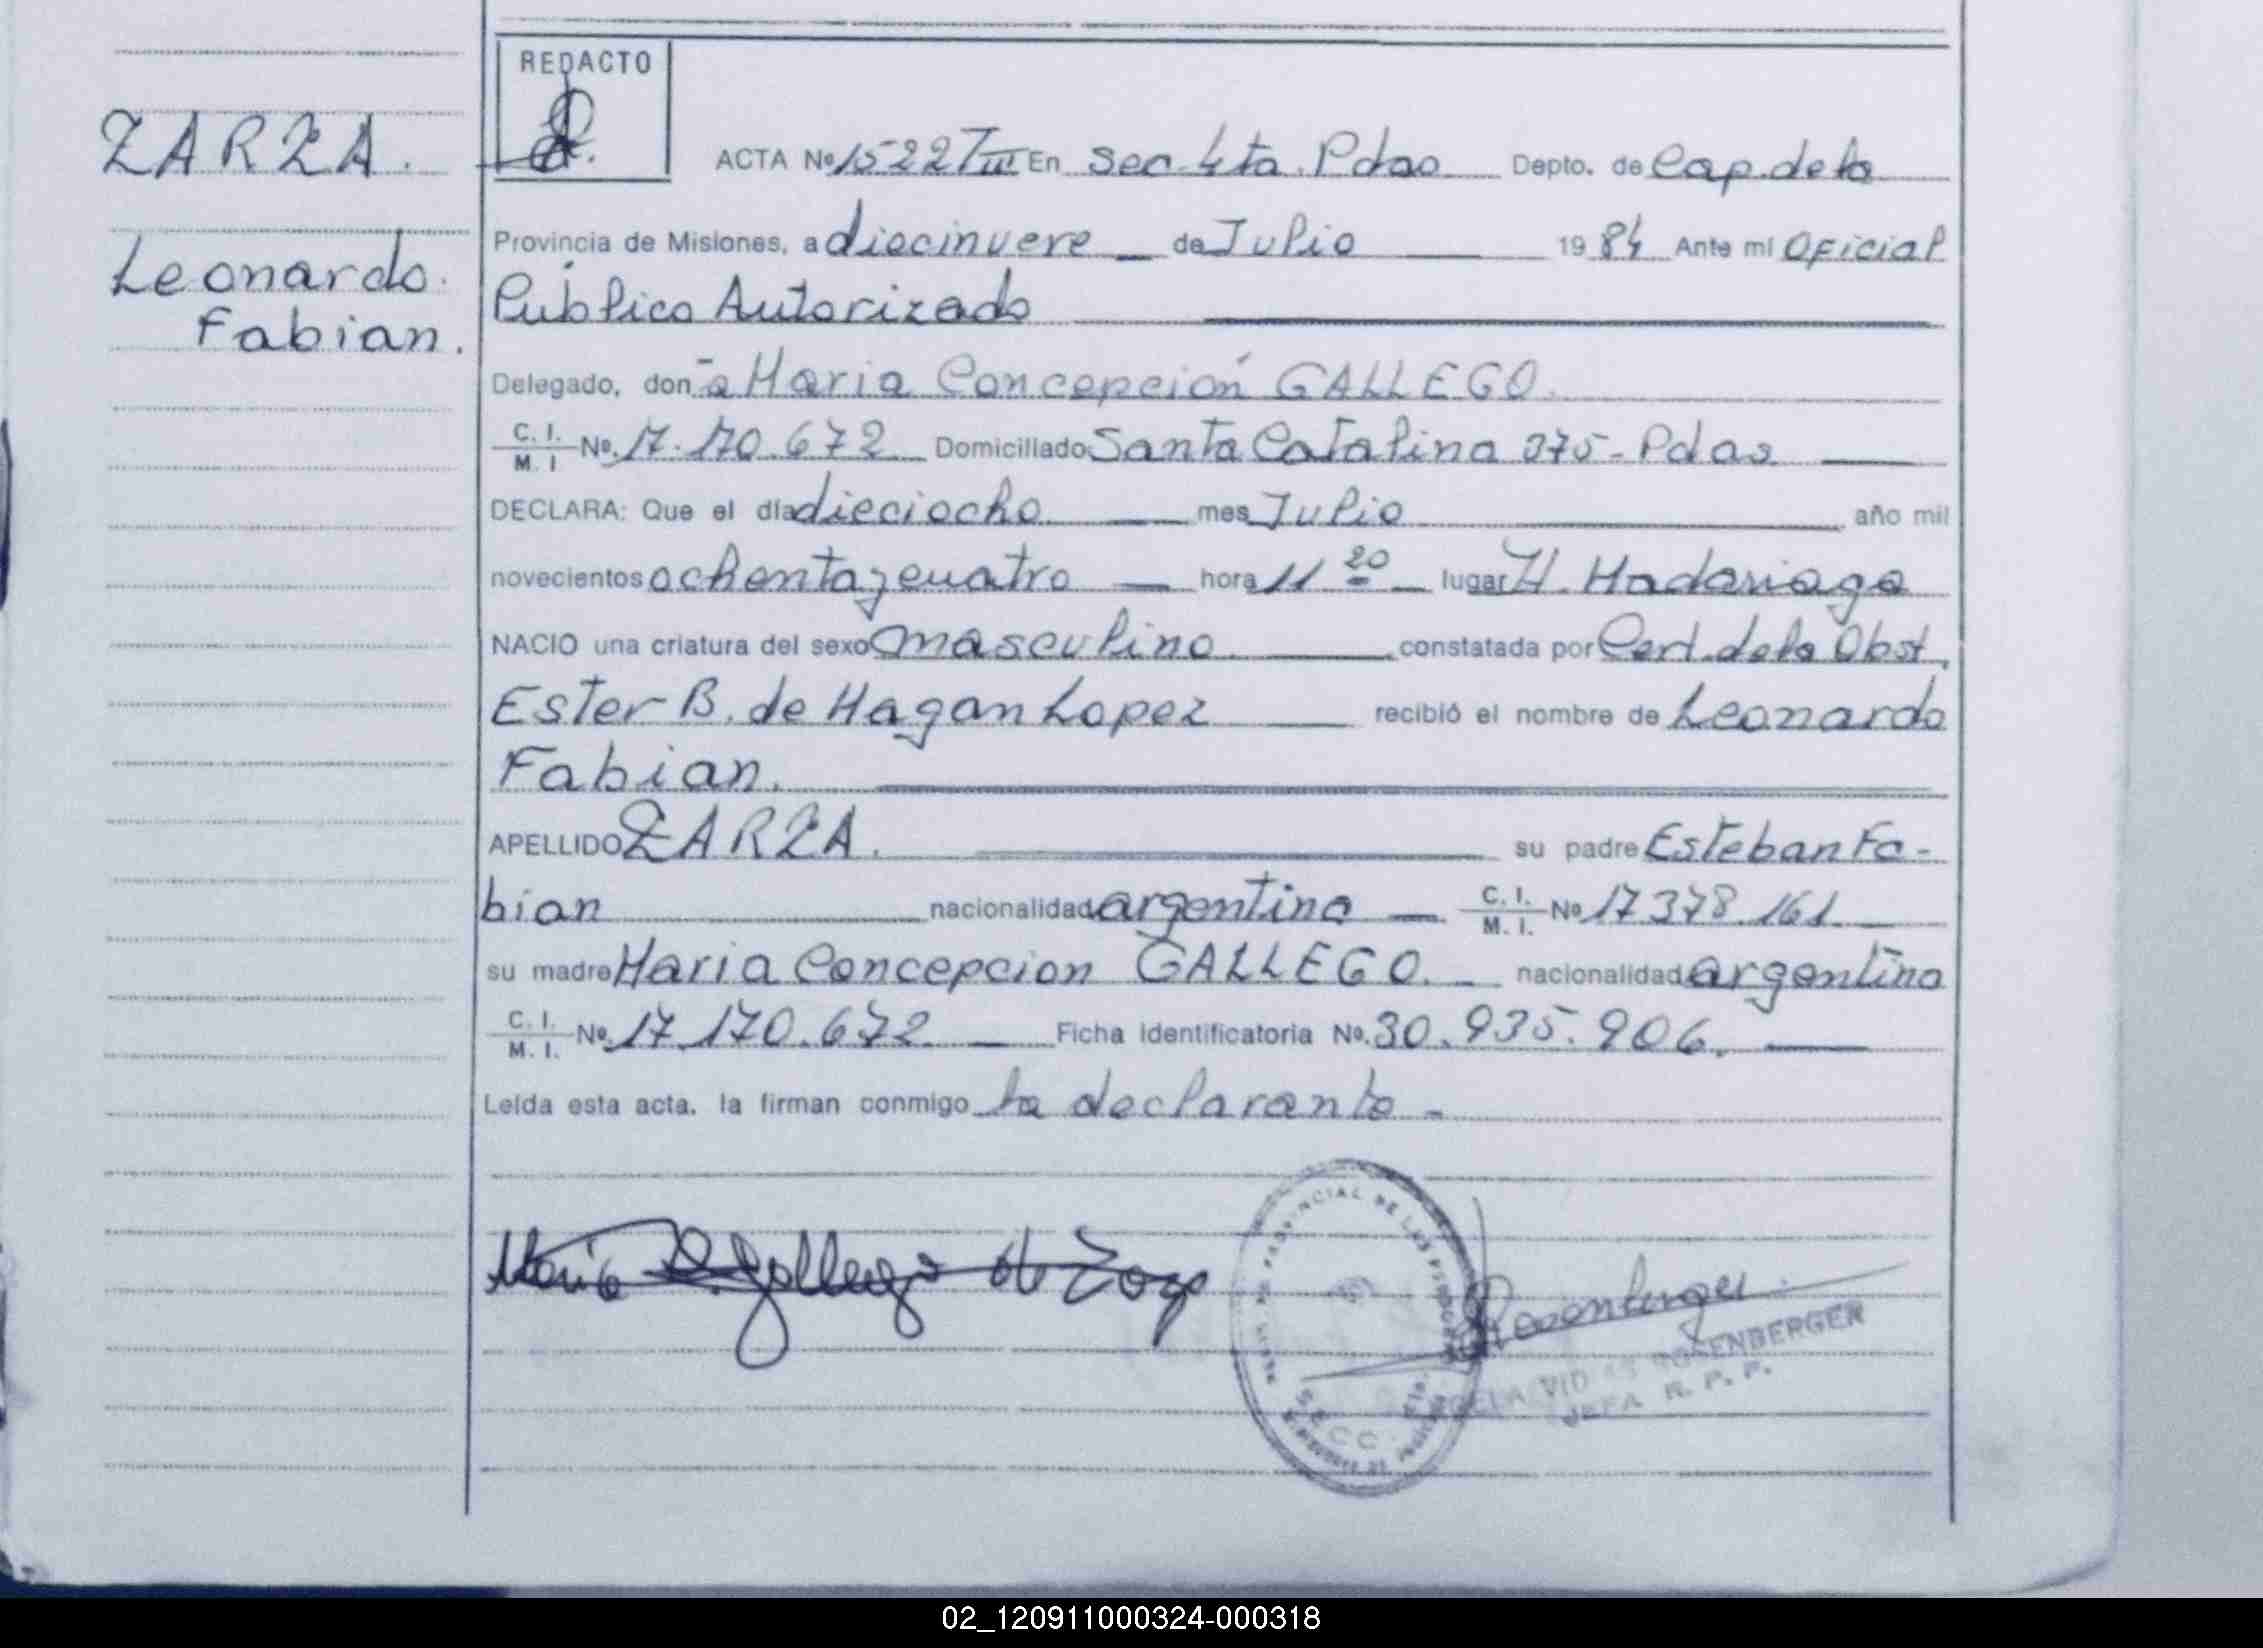 REDACTO
ZARZA.
Leonardo.
Fabian.
ACTA Nº 1522 TIII En Sec 4ta. Pdas Depto. de Cap. de la
Provincia de Misiones, a diecinueve de Julio 1984 Ante mi Oficial
Público Autorizado
Delegado, don ña Maria Concepción GALLEGO.
C. I. / M. I Nº. 17.170.672 Domiciliado Santa Catalina 375 - Pdas.
DECLARA: Que el día dieciocho mes Julio año mil
novecientos ochenta y cuatro hora 11 20 lugar H. Madariaga
NACIO una criatura del sexo masculino. constatada por Cert. de la Obst.
Ester B. de Magan Lopez recibió el nombre de Leonardo
Fabian.
APELLIDO ZARZA. su padre Esteban Fa-
bian nacionalidad argentina C. I. / M. I. Nº 17378.161
su madre Maria Concepcion GALLEGO. nacionalidad argentina
C. I. / M. I. Nº. 17.170.672 Ficha identificatoria Nº. 30.935.906.
Leída esta acta, la firman conmigo la declarante -
Maria C. Gallego de Zarza
PROVINCIAL DE LAS PERSONAS
SECC. 4ta.
Rosenberger
ROSENBERGER
JEFA R. P. P.
02_120911000324-000318